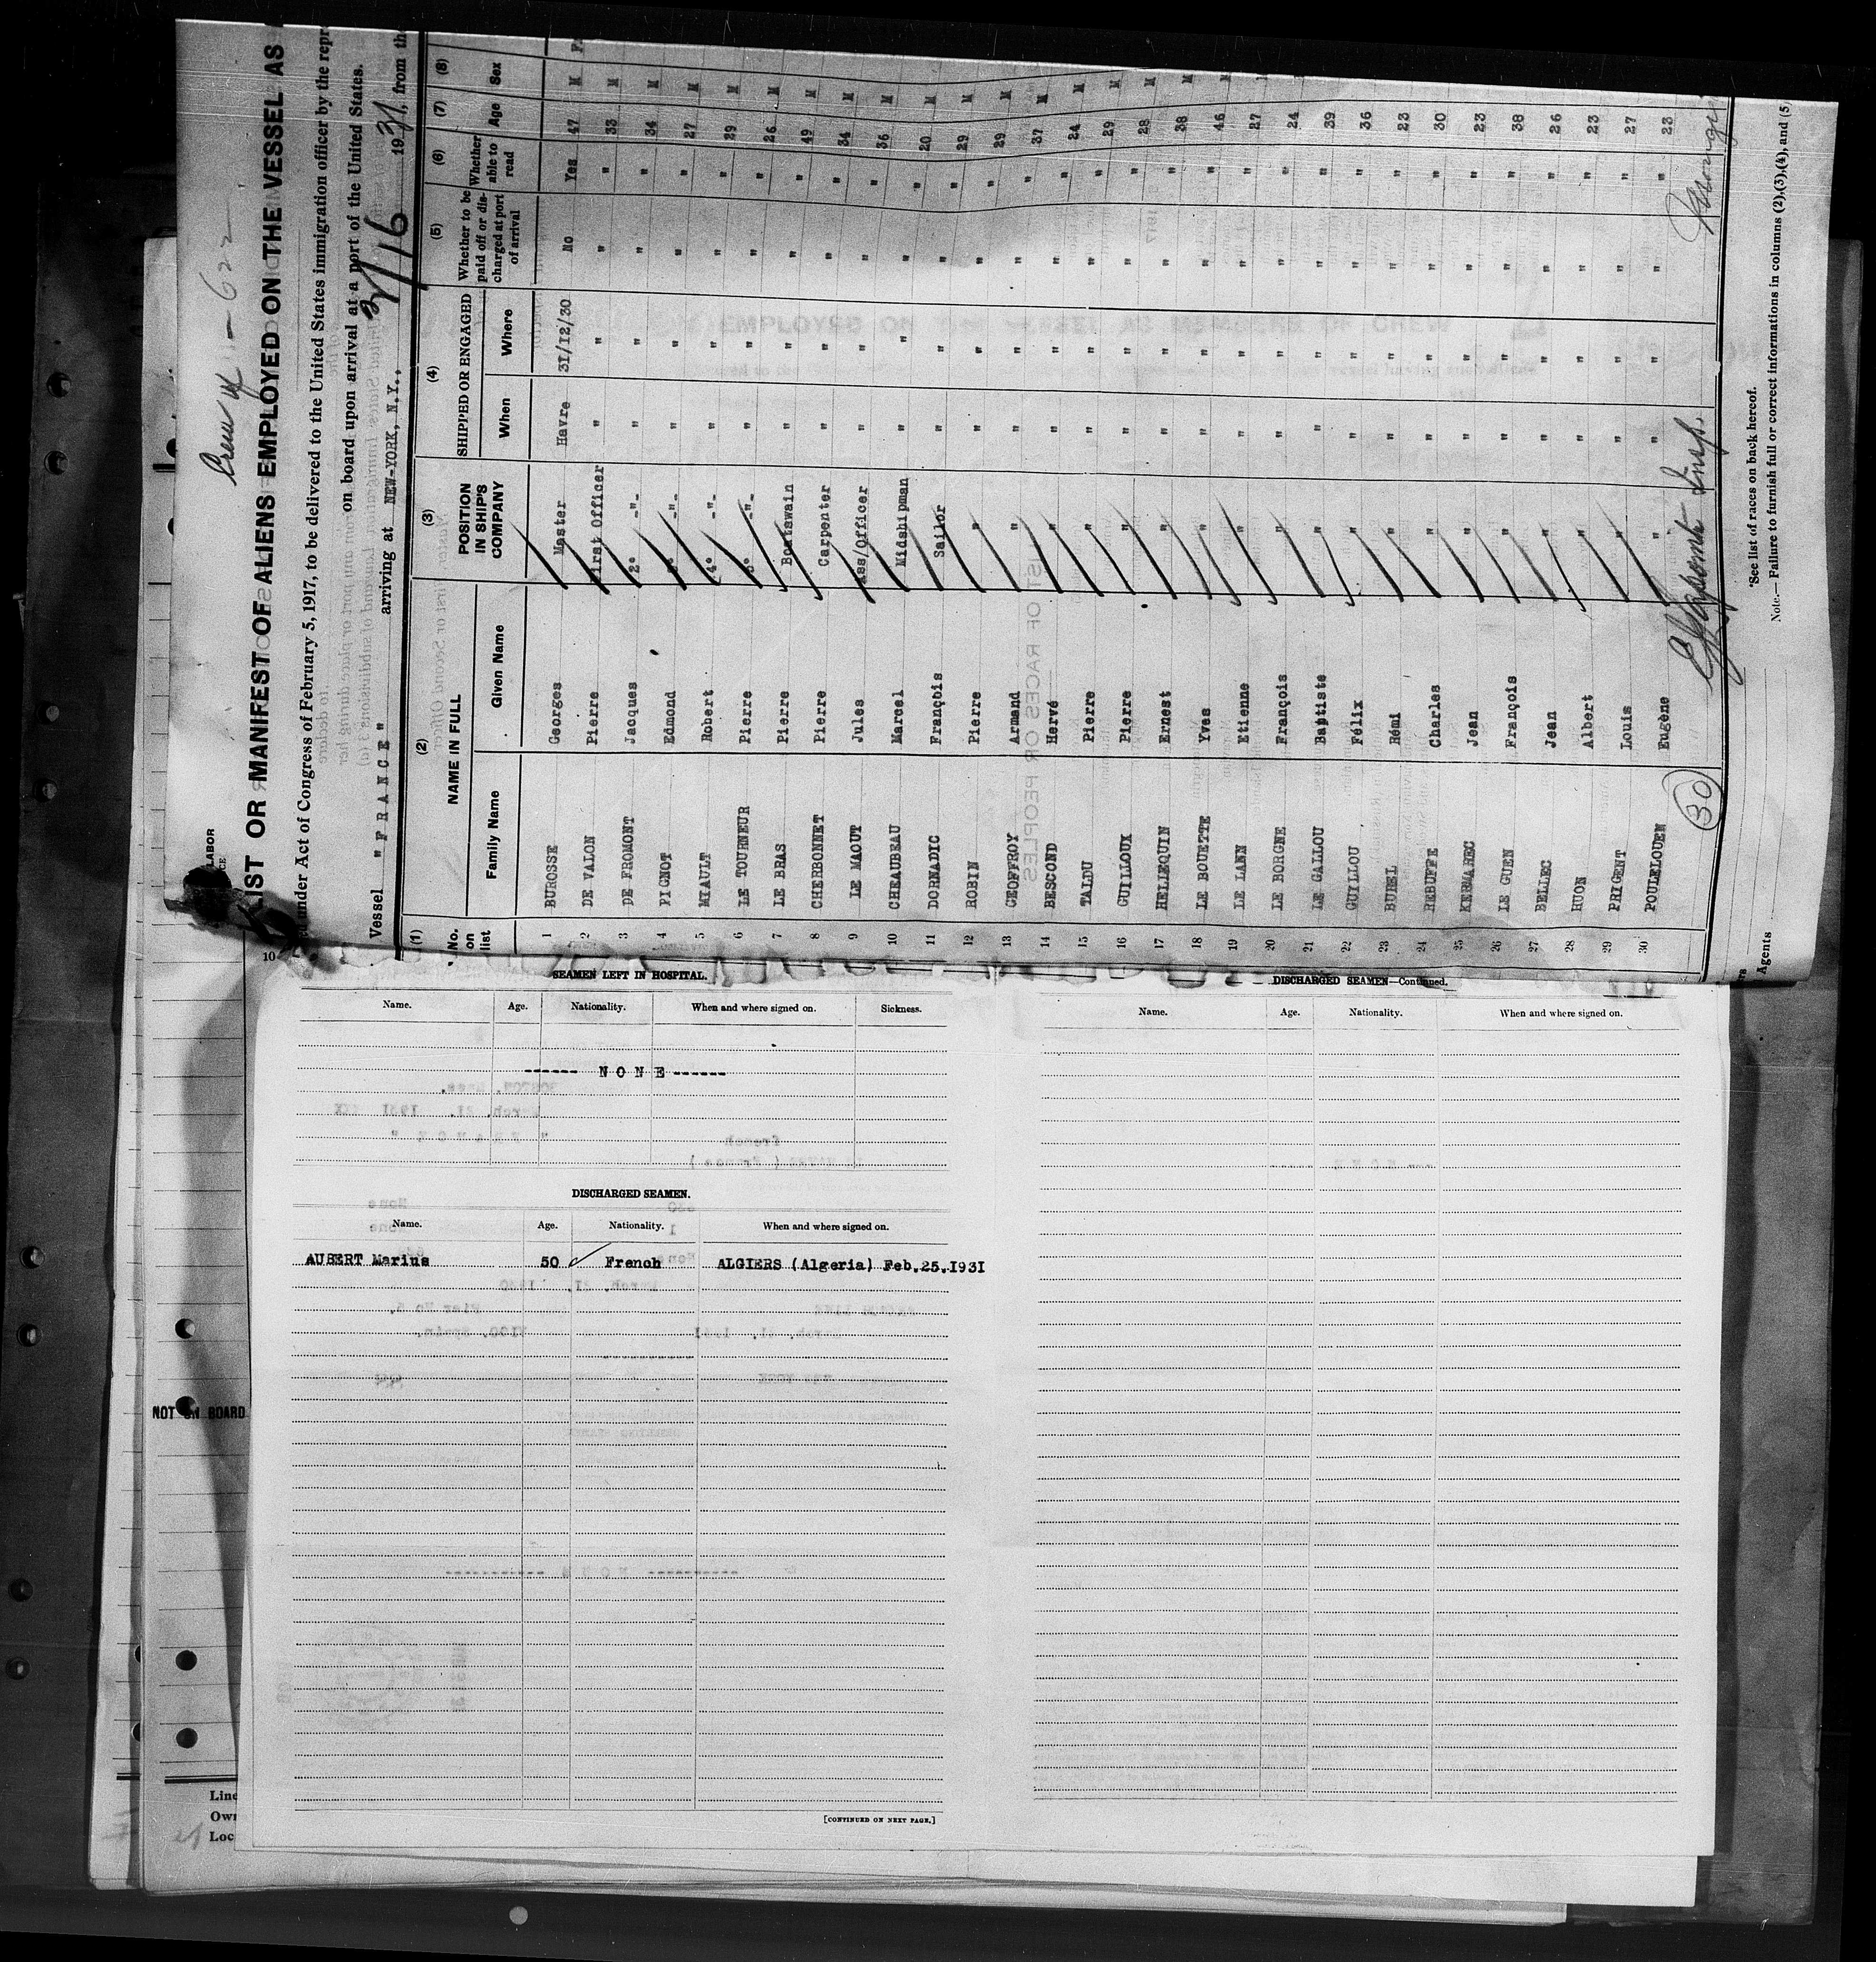 Crew - 622
LIST OR MANIFEST OF ALIENS EMPLOYED ON THE VESSEL AS
under Act of Congress of February 5, 1917, to be delivered to the United States immigration officer by the repr
on board upon arrival at a port of the United States.
2/16
Vessel "FRANCE" arriving at NEW-YORK, N.Y., 1931, from th
(1) (2) (3) (4) (5) (6) (7) (8)
No. on list NAME IN FULL POSITION IN SHIP'S COMPANY SHIPPED OR ENGAGED Whether to be paid off or discharged at port of arrival Whether able to read Age Sex
Family Name Given Name When Where
1 BUROSSE Georges Master Havre 31/12/30 No Yes 47 M
2 DE VALON Pierre First Officer " " " " 33 M
3 DE FROMONT Jacques 2° -"- " " " " 34 M
4 PIGNOT Edmond 3° -"- " " " " 27 M
5 MIAULT Robert 4° -"- " " " " 29 M
6 LE TOURNEUR Pierre 5° -"- " " " " 26 M
7 LE BRAS Pierre Boatswain " " " " 49 M
8 CHERBONNET Pierre Carpenter " " " " 34 M
9 LE MAOUT Jules Ass/Officer " " " " 36 M
10 CHEAUBEAU Marcel Midshipman " " " " 20 M
11 DORNADIC François Sailor " " " " 29 M
12 ROBIN Pierre " " " " " 29 M
13 GEOFFROY Armand " " " " " 37 M
14 BESCOND Hervé " " " " " 24 M
15 TALDU Pierre " " " " " 29 M
16 GUILLOUX Pierre " " " " " 28 M
17 HELLEQUIN Ernest " " " " " 38 M
18 LE BOUETTE Yves " " " " " 46 M
19 LE LANN Etienne " " " " " 27
20 LE BORGNE François " " " " " 24
21 LE GALLOU Baptiste " " " " " 39
22 GUILLOU Félix " " " " " 36
23 BUREL Rémi " " " " " 23
24 REBUFFE Charles " " " " " 30
25 KERMAREC Jean " " " " " 23
26 LE GUEN François " " " " " 38
27 BELLEC Jean " " " " " 26
28 HUON Albert " " " " " 23
29 PRIGENT Louis " " " " " 27
30 POULELOUEN Eugène " " " " " 23
30
Insp.
*See list of races on back hereof.
Agents Note.—Failure to furnish full or correct informations in columns (2),(3),(4), and (5)
LABOR
10
SEAMEN LEFT IN HOSPITAL.
Name. Age. Nationality. When and where signed on. Sickness.
------ N O N E ------
DISCHARGED SEAMEN.
Name. Age. Nationality. When and where signed on.
AUBERT Marius 50 French ALGIERS (Algeria) Feb.25.1931
[CONTINUED ON NEXT PAGE.]
DISCHARGED SEAMEN—Continued.
Name. Age. Nationality. When and where signed on.
NOT ON BOARD
Line
Own
Loc